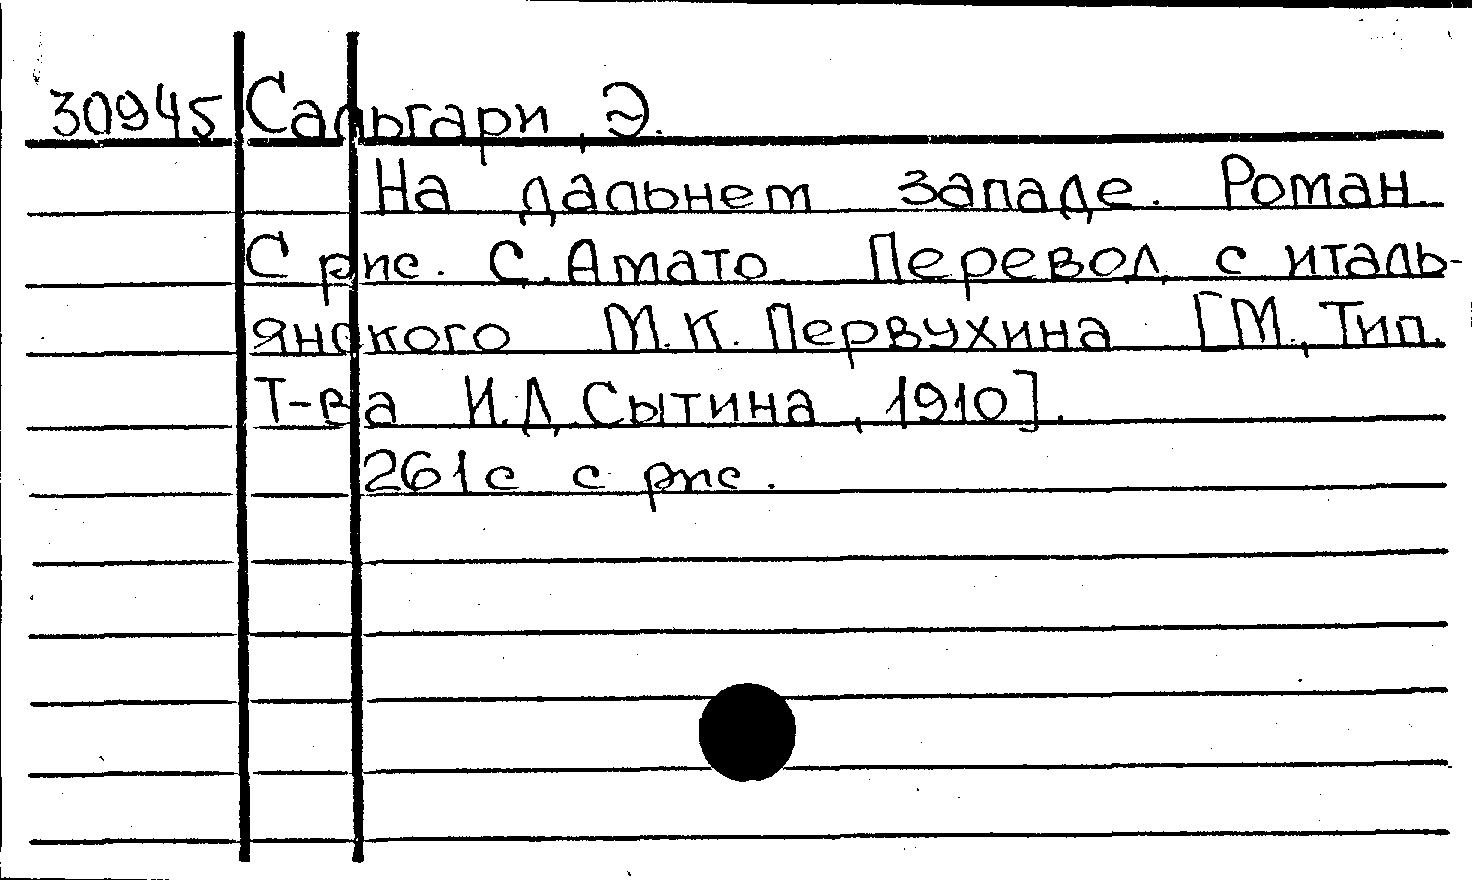 30945 Сальгари, Э.
На дальнем западе. Роман.
С рис. С. Амато. Перевод с италь-
янского М.К. Первухина [М., Тип.
Т-ва И.Д. Сытина, 1910].
261с с рис.